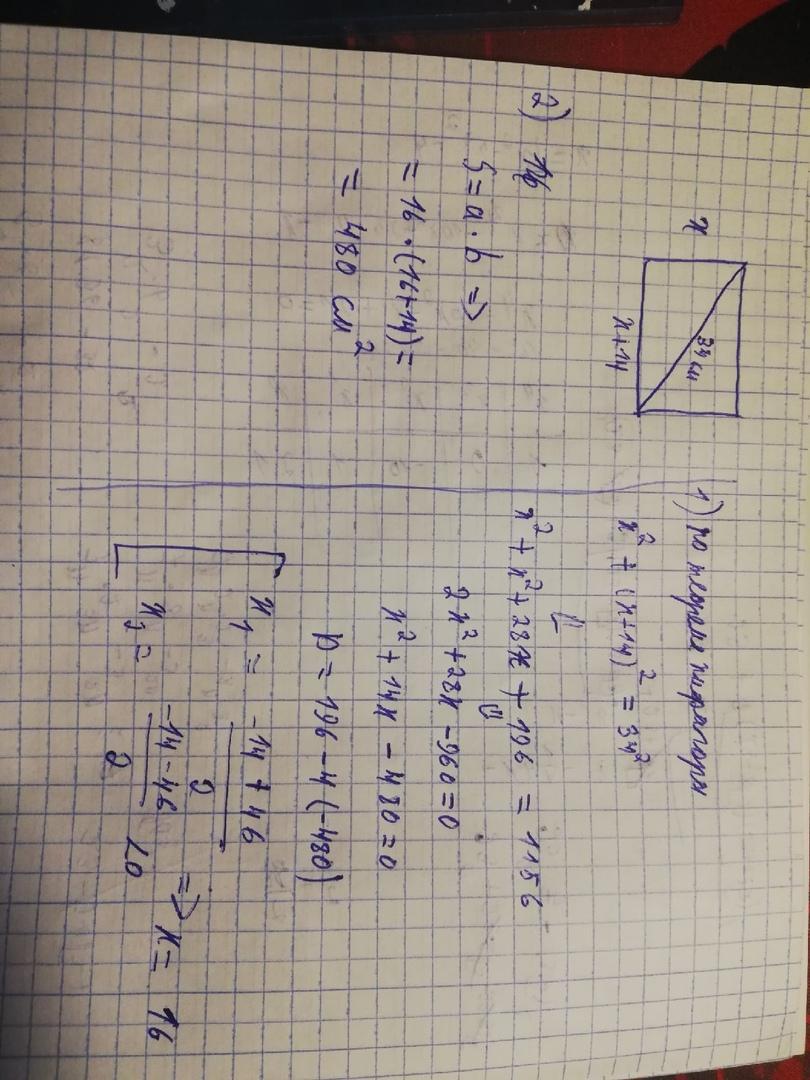 x
34 см
x+14
1) по теореме пифагора
x² + (x+14)² = 34²
⇓
x² + x² + 28x + 196 = 1156
⇓
2x² + 28x - 960 = 0
x² + 14x - 480 = 0
D = 196 - 4(-480)
x₁ = (-14 + 46)/2
x₂ = (-14 - 46)/2 <0
=> x = 16
2) 16
S = a · b =>
= 16 · (16+14) =
= 480 см²